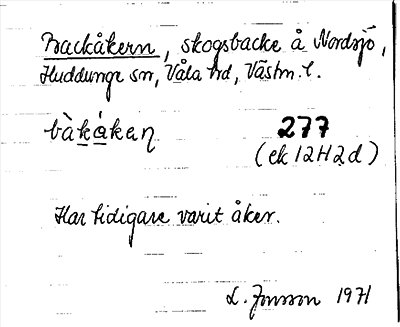 Backåkern, skogsbacke å Nordsjö,
Huddunge sn, Våla hd, Västm. l.
bàkákan 277
(ek 12H2d)
Har tidigare varit åker.
L. Jonsson 1971